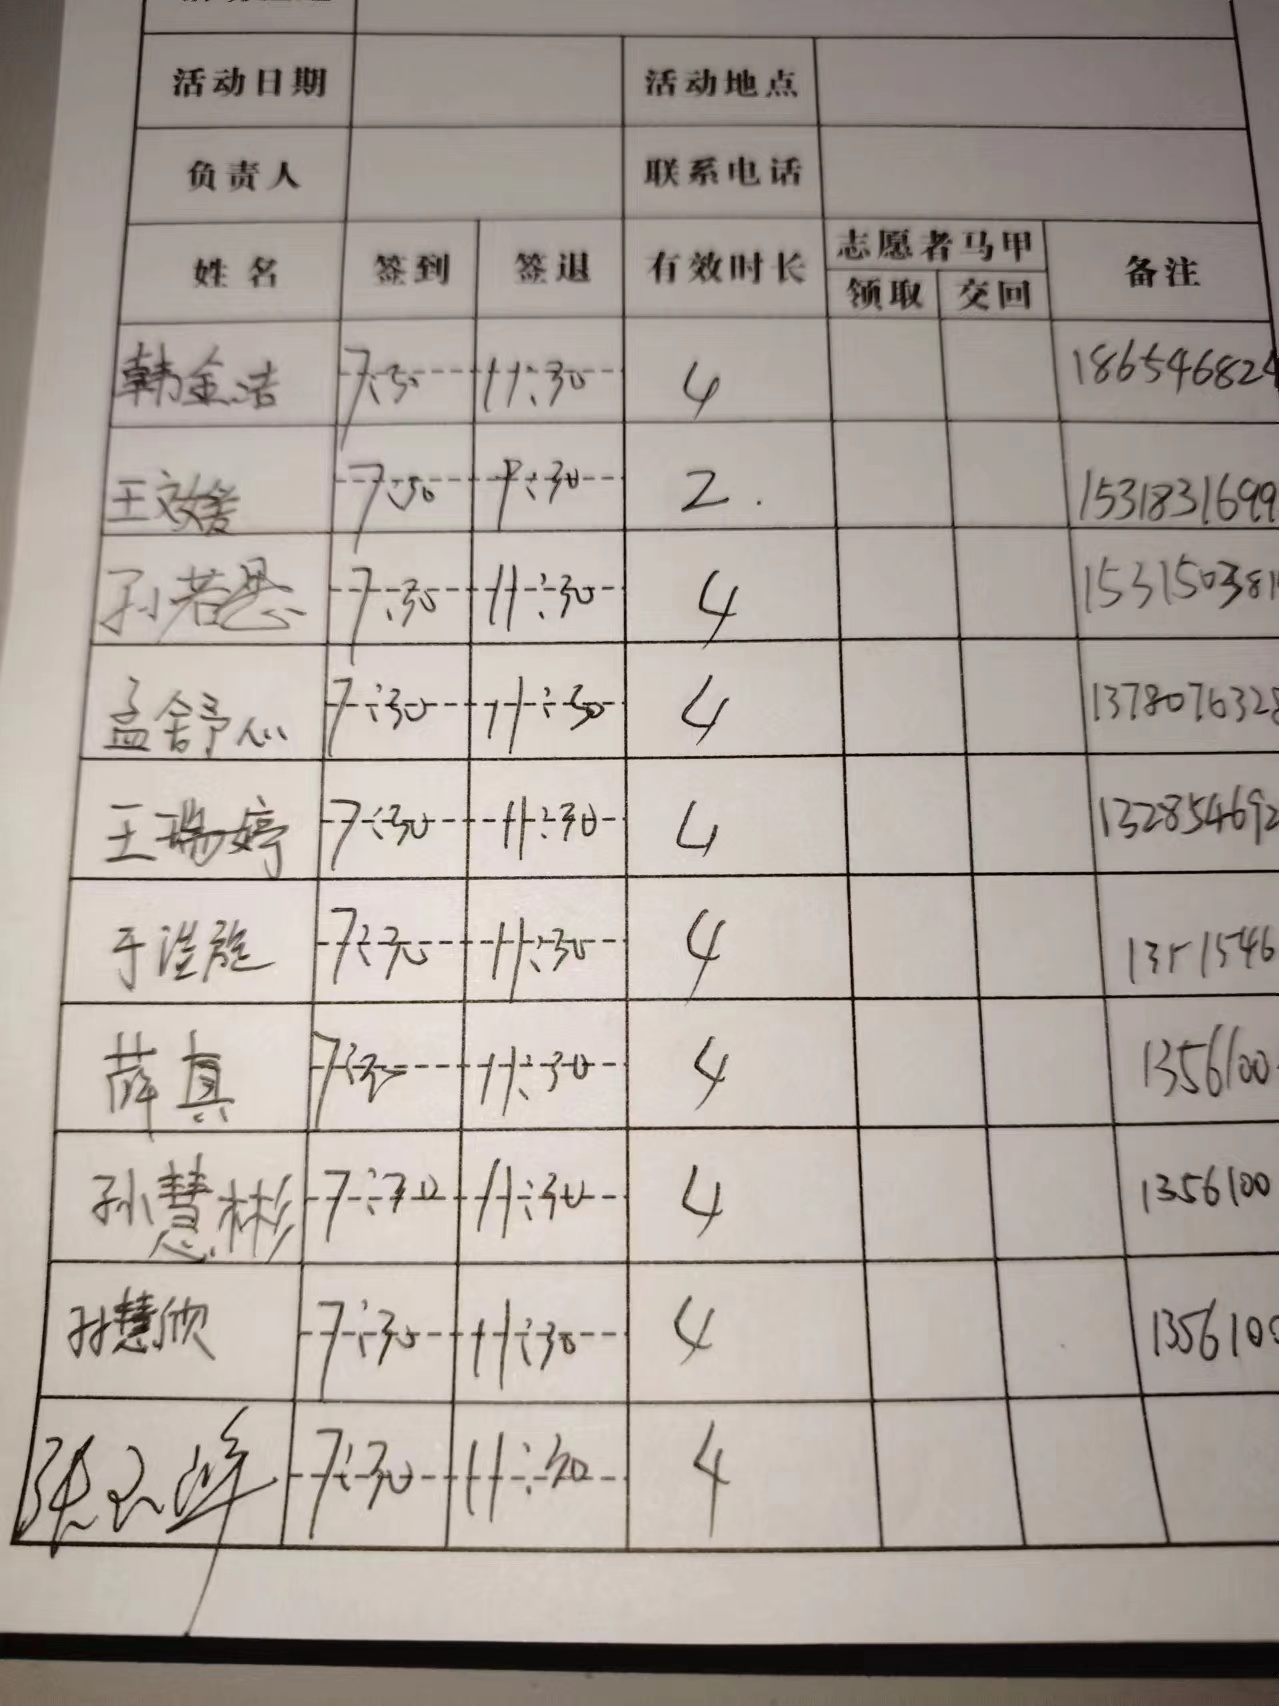 活动日期 活动地点
负责人 联系电话
姓名 签到 签退 有效时长 志愿者马甲 备注
领取 交回
韩金洁 7:30 11:30 4 186546824
王文媛 7:30 9:30 2. 1531831699
孙若恩 7:30 11:30 4 153150381
孟舒心 7:30 11:30 4 1378076328
王瑞婷 7:30 11:30 4 132854692
于洪旋 7:30 11:30 4 1351546
薛真 7:30 11:30 4 1356100
孙慧彬 7:30 11:30 4 1356100
孙慧欣 7:30 11:30 4 1356100
张玉峰 7:30 11:30 4